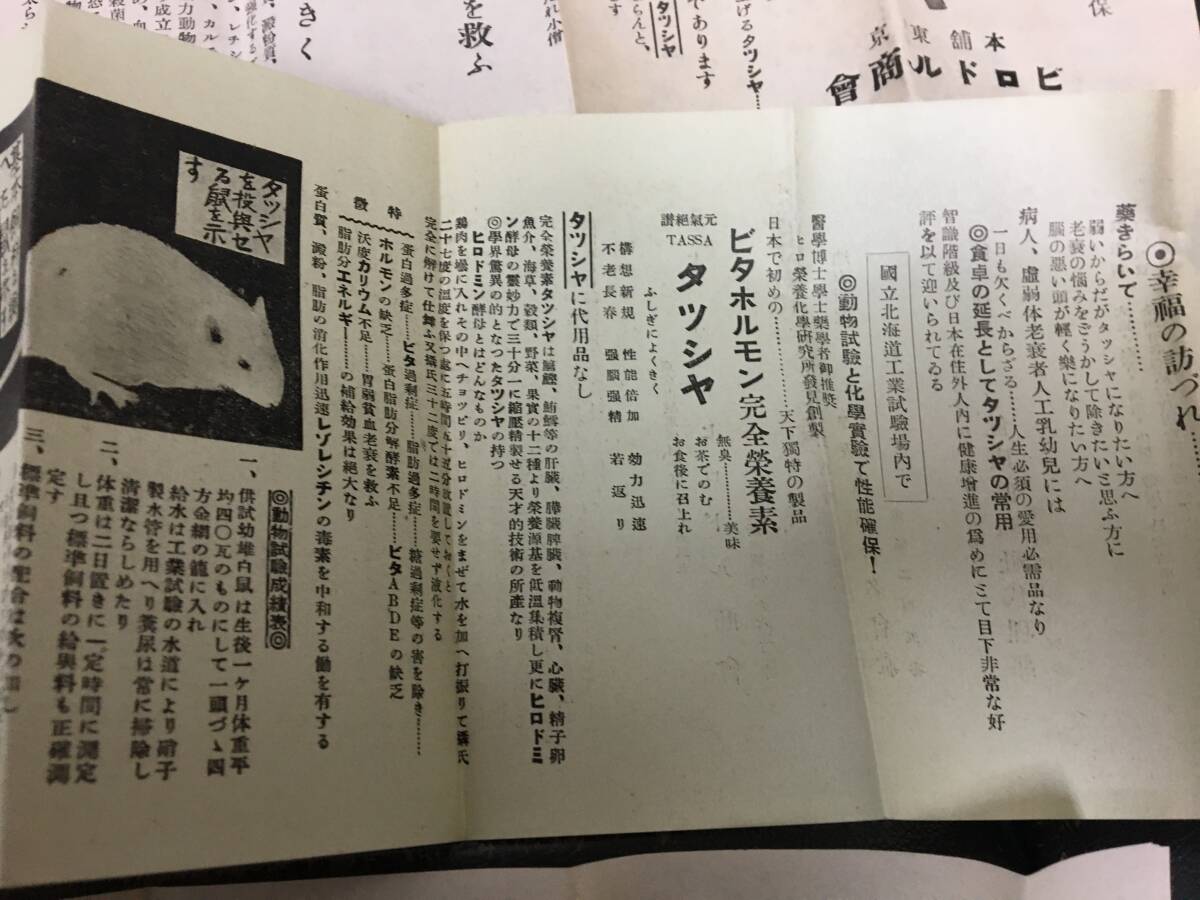 ◉幸福の訪づれ……
藥きらいて…………
弱いからだがタッシヤになりたい方へ
老衰の悩みをどうかして除きたいと思ふ方に
腦の悪い頭が輕く樂になりたい方へ
病人、虛弱体老衰者人工乳幼兒には
一日も欠くべからざる……人生必須の愛用必需品なり
◎食卓の延長としてタツシヤの常用
智識階級及び日本在住外人內に健康增進の爲めにとて目下非常な好
評を以て迎いられてゐる
國立北海道工業試驗場內で
◎動物試驗と化學實驗で性能確保！
醫學博士學士藥學者御推奬
ヒロ榮養化學硏究所發見創製
日本で初めの…………天下獨特の製品
ビタホルモン完全榮養素
無臭…………美味
お茶でのむ
お食後に召上れ
元氣絕讃
TASSA
タツシヤ
ふしぎによくきく
構想新規 性能倍加 効力迅速
不老長春 强腦强精 若返り
タツシヤに代用品なし
完全榮養素タツシヤは腦髓、鮪鱈等の肝臓、膵臓脾臓、動物複腎、心臓、精子卵
魚介、海草、穀類、野菜、果實の十二種より榮養源基を低溫集積し更にヒロドミ
ン酵母の靈妙力で三十分一に縮壓精製せる天才的技術の所產なり
◎學界驚異の的となつたタツシヤの持つ
ヒロドミン酵母とはどんなものか
鷄肉を壜に入れその中へチヨツピリ、ヒロドミンをまぜて水を加へ打振りて攝氏
二十七度の溫度を保つ處に五時間五十五分放置しておくと
完全に解けて仕舞ふ又攝氏三十二度では二時間を要せず液化する
特徵
蛋白過多症……ビタ過剩症……脂肪過多症……糖過剩症等の害を除き……
ホルモンの缺乏……蛋白脂肪分解酵素不足……ビタABDEの缺乏
沃度カリウム不足……胃弱貧血老衰を救ふ
脂肪分エネルギー……の補給効果は絕大なり
蛋白質、澱粉、脂肪の消化作用迅速レゾレシチンの毒素を中和する働を有する
タッシヤ
を投與セ
る鼠を示
す
◎動物試驗成績表◎
一、供試幼雄白鼠は生後一ヶ月体重平
均四〇瓦のものにして一頭づゝ四
方金網の籠に入れ
給水は工業試驗の水道により硝子
製水管を用へり糞尿は常に掃除し
淸潔ならしめたり
二、体重は二日置きに一定時間に測定
し且つ標準飼料の給與料も正確測
定す
三、標準飼料の配合は次の如し
ビロドル商會
本舖
東京
上げるタツシヤ……
であります
タツシヤ
を救ふ
きく